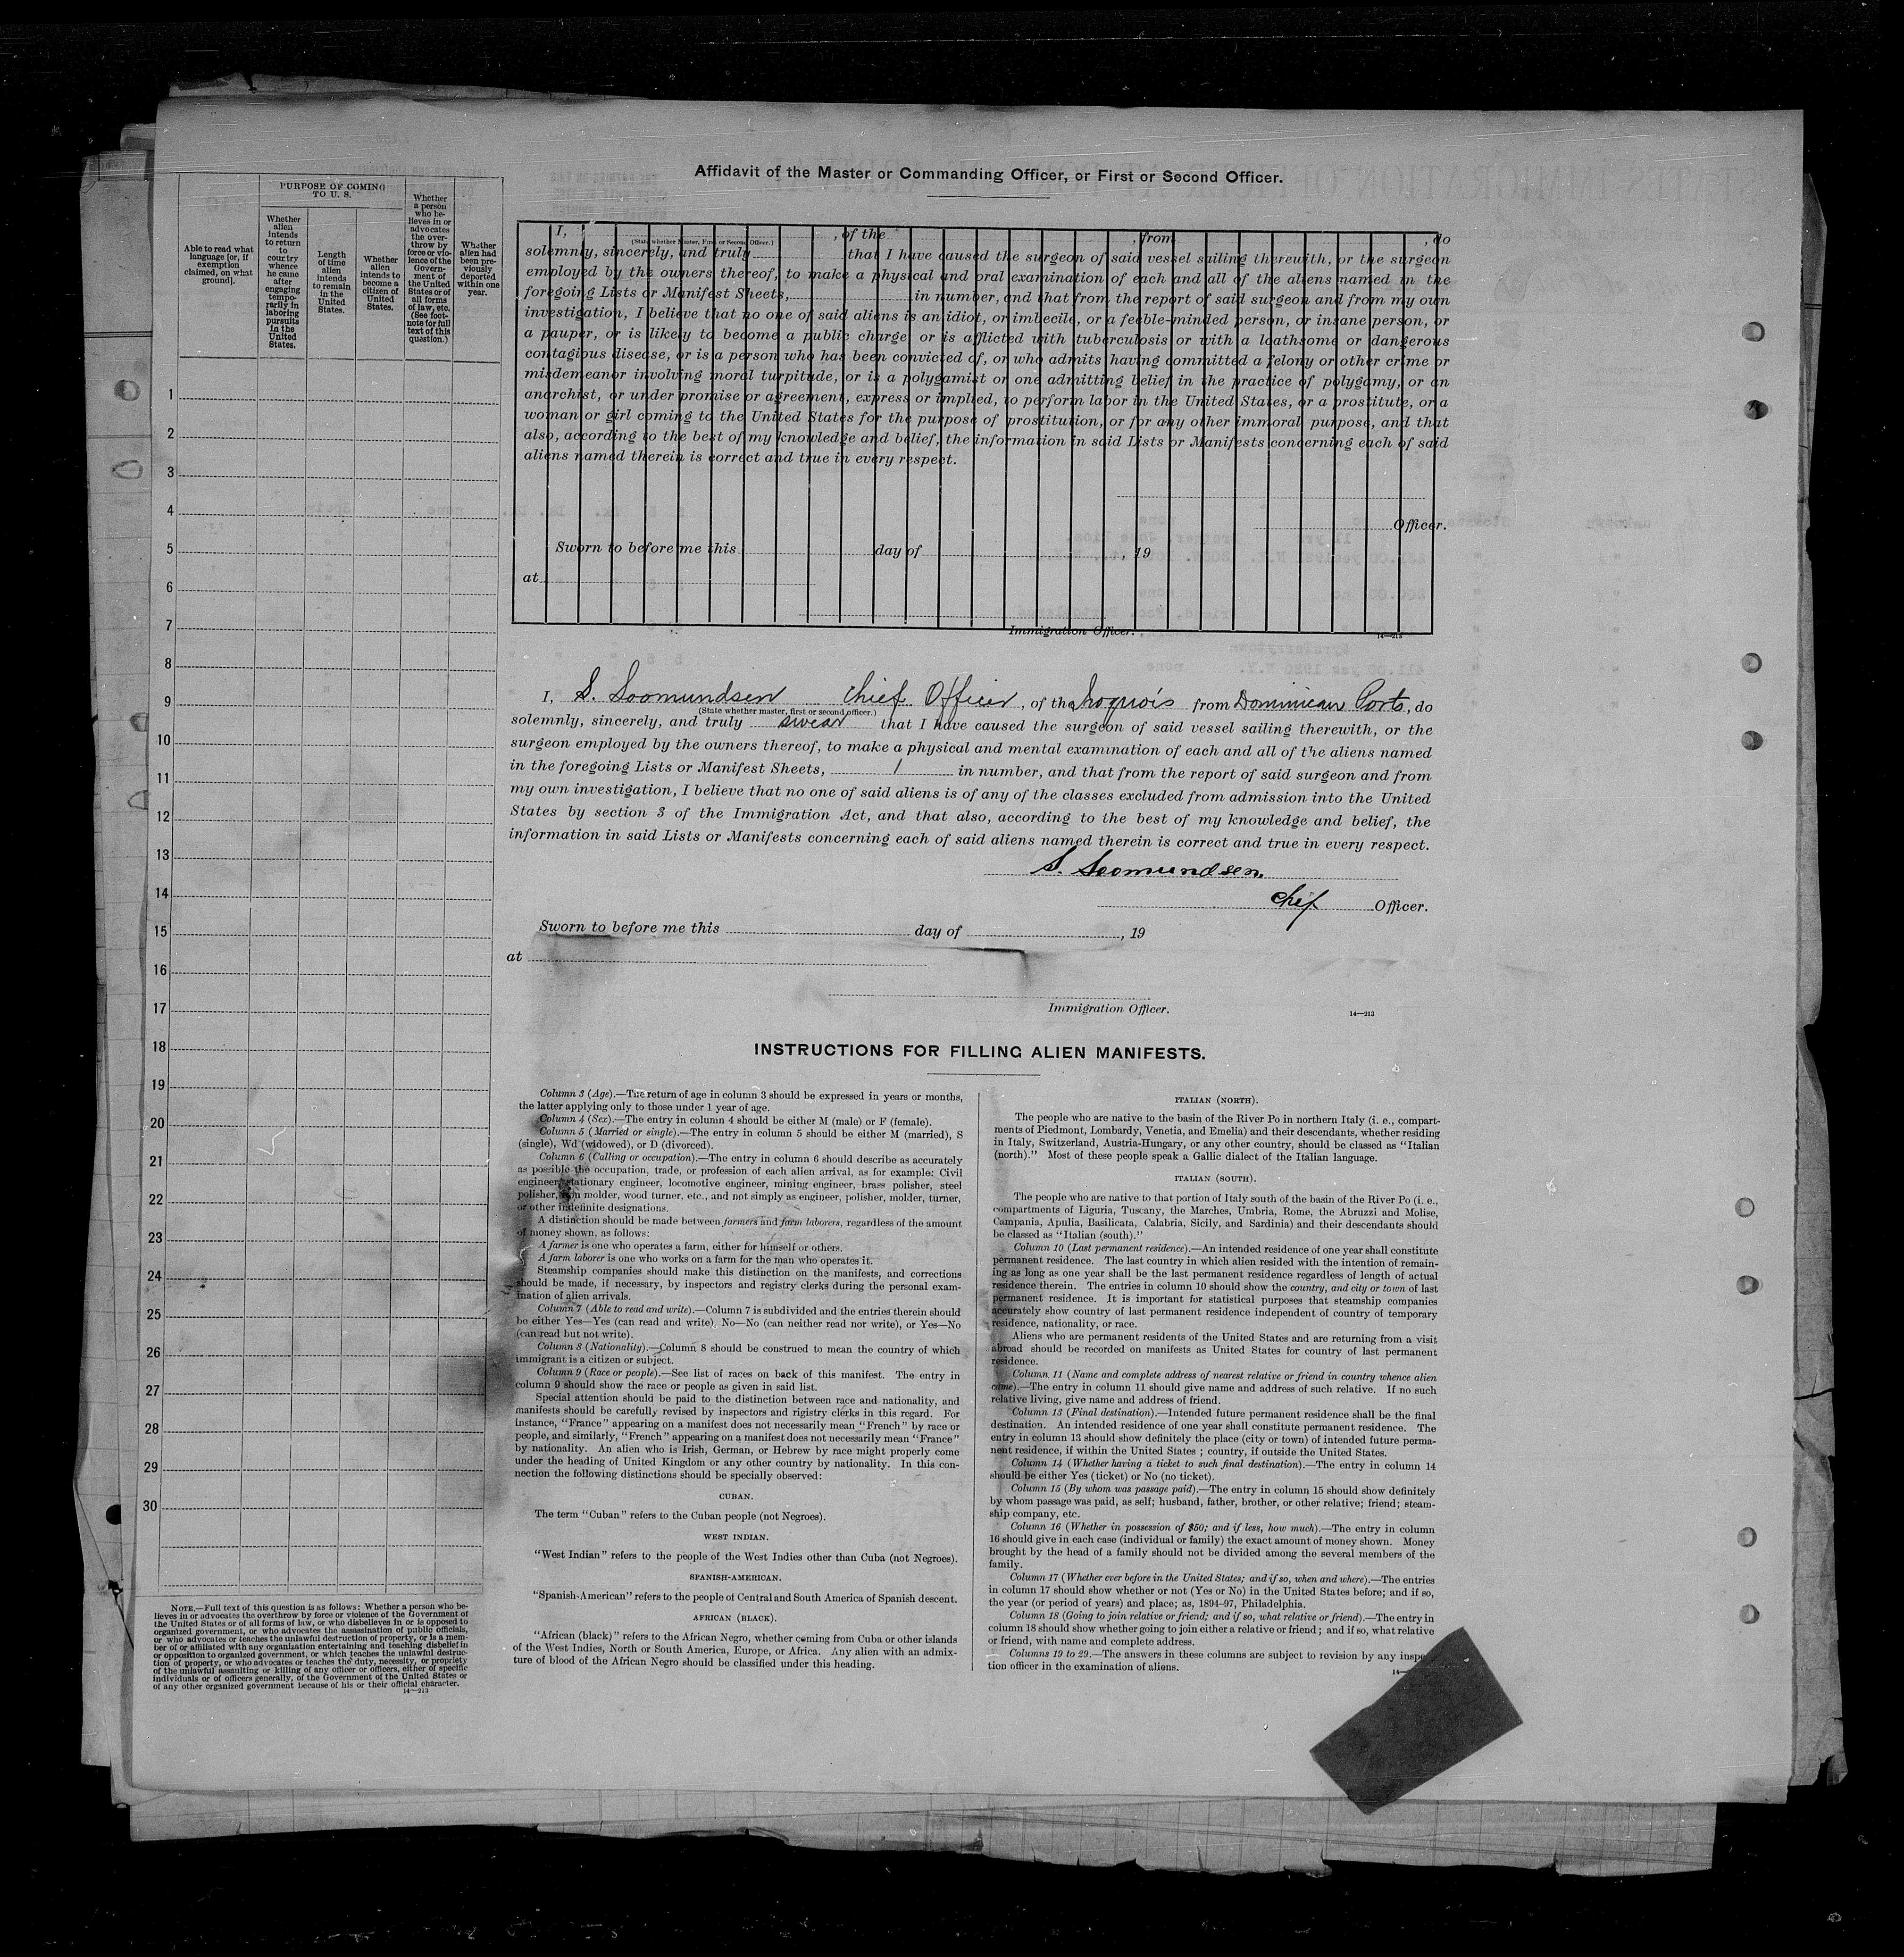 Affidavit of the Master or Commanding Officer, or First or Second Officer.
PURPOSE OF COMING
TO U. S.
Able to read what
language [or, if
exemption
claimed, on what
ground].
Whether
alien
intends
to return
to
country
whence
he came
after
engaging
tempo-
rarily in
laboring
pursuits
in the
United
States.
Length
of time
alien
intends
to remain
in the
United
States.
Whether
alien
intends to
become a
citizen of
United
States.
Whether
a person
who be-
lieves in or
advocates
the over-
throw by
force or vio-
lence of the
Govern-
ment of
the United
States or of
all forms
of law, etc.
(See foot-
note for full
text of this
question.)
Whether
alien had
been pre-
viously
deported
within one
year.
1
2
3
4
5
6
7
8
9
10
11
12
13
14
15
16
17
18
19
20
21
22
23
24
25
26
27
28
29
30
NOTE.—Full text of this question is as follows: Whether a person who be-
lieves in or advocates the overthrow by force or violence of the Government of
the United States or of all forms of law, or who disbelieves in or is opposed to
organized government, or who advocates the assassination of public officials,
or who advocates or teaches the unlawful destruction of property, or is a mem-
ber of or affiliated with any organization entertaining and teaching disbelief in
or opposition to organized government, or which teaches the unlawful destruc-
tion of property, or who advocates or teaches the duty, necessity, or propriety
of the unlawful assaulting or killing of any officer or officers, either of specific
individuals or of officers generally, of the Government of the United States or
of any other organized government because of his or their official character.
14—213
I, , of the , from , do
(State whether Master, First or Second Officer.)
solemnly, sincerely, and truly that I have caused the surgeon of said vessel sailing therewith, or the surgeon
employed by the owners thereof, to make a physical and oral examination of each and all of the aliens named in the
foregoing Lists or Manifest Sheets, in number, and that from the report of said surgeon and from my own
investigation, I believe that no one of said aliens is an idiot, or imbecile, or a feeble-minded person, or insane person, or
a pauper, or is likely to become a public charge, or is afflicted with tuberculosis or with a loathsome or dangerous
contagious disease, or is a person who has been convicted of, or who admits having committed a felony or other crime or
misdemeanor involving moral turpitude, or is a polygamist or one admitting belief in the practice of polygamy, or an
anarchist, or under promise or agreement, express or implied, to perform labor in the United States, or a prostitute, or a
woman or girl coming to the United States for the purpose of prostitution, or for any other immoral purpose, and that
also, according to the best of my knowledge and belief, the information in said Lists or Manifests concerning each of said
aliens named therein is correct and true in every respect.
Officer.
Sworn to before me this day of , 19
at
Immigration Officer.
14—213
I, S. Soomundsen chief Officer, of the Iroquois from Dominican Ports, do
(State whether master, first or second officer.)
solemnly, sincerely, and truly swear that I have caused the surgeon of said vessel sailing therewith, or the
surgeon employed by the owners thereof, to make a physical and mental examination of each and all of the aliens named
in the foregoing Lists or Manifest Sheets, 1 in number, and that from the report of said surgeon and from
my own investigation, I believe that no one of said aliens is of any of the classes excluded from admission into the United
States by section 3 of the Immigration Act, and that also, according to the best of my knowledge and belief, the
information in said Lists or Manifests concerning each of said aliens named therein is correct and true in every respect.
S. Soomundsen.
Chief Officer.
Sworn to before me this day of , 19
at
Immigration Officer.
14—213
INSTRUCTIONS FOR FILLING ALIEN MANIFESTS.
Column 3 (Age).—The return of age in column 3 should be expressed in years or months,
the latter applying only to those under 1 year of age.
Column 4 (Sex).—The entry in column 4 should be either M (male) or F (female).
Column 5 (Married or single).—The entry in column 5 should be either M (married), S
(single), Wd (widowed), or D (divorced).
Column 6 (Calling or occupation).—The entry in column 6 should describe as accurately
as possible the occupation, trade, or profession of each alien arrival, as for example: Civil
engineer, stationary engineer, locomotive engineer, mining engineer, brass polisher, steel
polisher, iron molder, wood turner, etc., and not simply as engineer, polisher, molder, turner,
or other indefinite designations.
A distinction should be made between farmers and farm laborers, regardless of the amount
of money shown, as follows:
A farmer is one who operates a farm, either for himself or others.
A farm laborer is one who works on a farm for the man who operates it.
Steamship companies should make this distinction on the manifests, and corrections
should be made, if necessary, by inspectors and registry clerks during the personal exam-
ination of alien arrivals.
Column 7 (Able to read and write).—Column 7 is subdivided and the entries therein should
be either Yes—Yes (can read and write), No—No (can neither read nor write), or Yes—No
(can read but not write).
Column 8 (Nationality).—Column 8 should be construed to mean the country of which
immigrant is a citizen or subject.
Column 9 (Race or people).—See list of races on back of this manifest. The entry in
column 9 should show the race or people as given in said list.
Special attention should be paid to the distinction between race and nationality, and
manifests should be carefully revised by inspectors and rigistry clerks in this regard. For
instance, "France" appearing on a manifest does not necessarily mean "French" by race or
people, and similarly, "French" appearing on a manifest does not necessarily mean "France"
by nationality. An alien who is Irish, German, or Hebrew by race might properly come
under the heading of United Kingdom or any other country by nationality. In this con-
nection the following distinctions should be specially observed:
CUBAN.
The term "Cuban" refers to the Cuban people (not Negroes).
WEST INDIAN.
"West Indian" refers to the people of the West Indies other than Cuba (not Negroes).
SPANISH-AMERICAN.
"Spanish-American" refers to the people of Central and South America of Spanish descent.
AFRICAN (BLACK).
"African (black)" refers to the African Negro, whether coming from Cuba or other islands
of the West Indies, North or South America, Europe, or Africa. Any alien with an admix-
ture of blood of the African Negro should be classified under this heading.
ITALIAN (NORTH).
The people who are native to the basin of the River Po in northern Italy (i. e., compart-
ments of Piedmont, Lombardy, Venetia, and Emelia) and their descendants, whether residing
in Italy, Switzerland, Austria-Hungary, or any other country, should be classed as "Italian
(north)." Most of these people speak a Gallic dialect of the Italian language.
ITALIAN (SOUTH).
The people who are native to that portion of Italy south of the basin of the River Po (i. e.,
compartments of Liguria, Tuscany, the Marches, Umbria, Rome, the Abruzzi and Molise,
Campania, Apulia, Basilicata, Calabria, Sicily, and Sardinia) and their descendants should
be classed as "Italian (south)."
Column 10 (Last permanent residence).—An intended residence of one year shall constitute
permanent residence. The last country in which alien resided with the intention of remain-
ing as long as one year shall be the last permanent residence regardless of length of actual
residence therein. The entries in column 10 should show the country, and city or town of last
permanent residence. It is important for statistical purposes that steamship companies
accurately show country of last permanent residence independent of country of temporary
residence, nationality, or race.
Aliens who are permanent residents of the United States and are returning from a visit
abroad should be recorded on manifests as United States for country of last permanent
residence.
Column 11 (Name and complete address of nearest relative or friend in country whence alien
came).—The entry in column 11 should give name and address of such relative. If no such
relative living, give name and address of friend.
Column 13 (Final destination).—Intended future permanent residence shall be the final
destination. An intended residence of one year shall constitute permanent residence. The
entry in column 13 should show definitely the place (city or town) of intended future perma-
nent residence, if within the United States ; country, if outside the United States.
Column 14 (Whether having a ticket to such final destination).—The entry in column 14
should be either Yes (ticket) or No (no ticket).
Column 15 (By whom was passage paid).—The entry in column 15 should show definitely
by whom passage was paid, as self; husband, father, brother, or other relative; friend; steam-
ship company, etc.
Column 16 (Whether in possession of $50; and if less, how much).—The entry in column
16 should give in each case (individual or family) the exact amount of money shown. Money
brought by the head of a family should not be divided among the several members of the
family.
Column 17 (Whether ever before in the United States; and if so, when and where).—The entries
in column 17 should show whether or not (Yes or No) in the United States before; and if so,
the year (or period of years) and place; as, 1894-97, Philadelphia.
Column 18 (Going to join relative or friend; and if so, what relative or friend).—The entry in
column 18 should show whether going to join either a relative or friend ; and if so, what relative
or friend, with name and complete address.
Columns 19 to 29.—The answers in these columns are subject to revision by any inspec-
tion officer in the examination of aliens.
14—